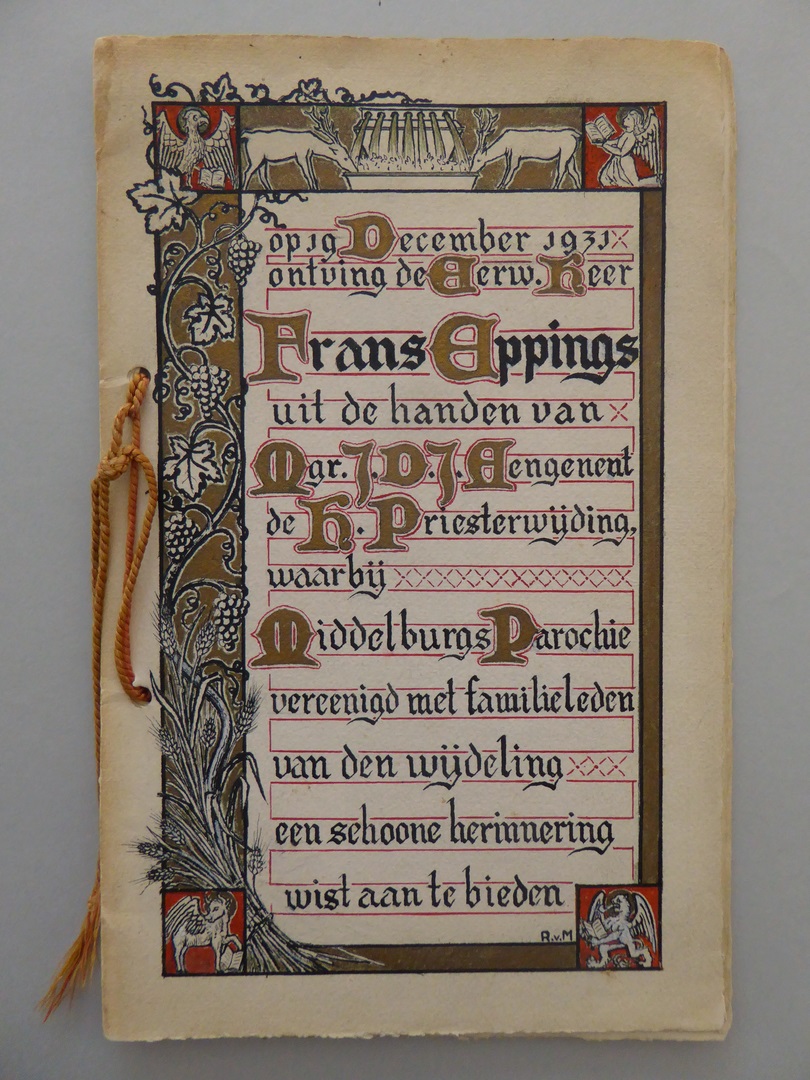 op 19 December 1931
ontving de Eerw. Heer
Frans Eppings
uit de handen van
Mgr. J. D. J. Aengenent
de H. Priesterwijding,
waarbij
Middelburgs Parochie
vereenigd met familieleden
van den wijdeling
een schoone herinnering
wist aan te bieden
R.v.M